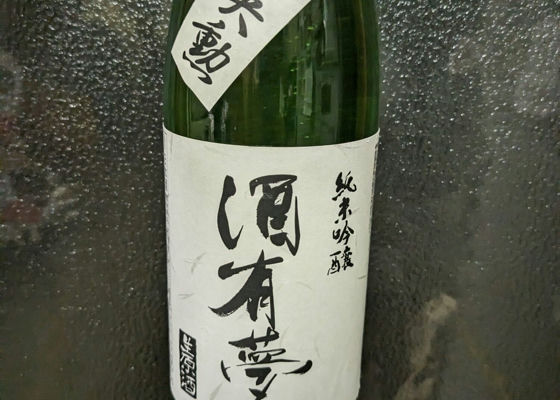 英勲
純米吟醸
酒有夢
生原酒